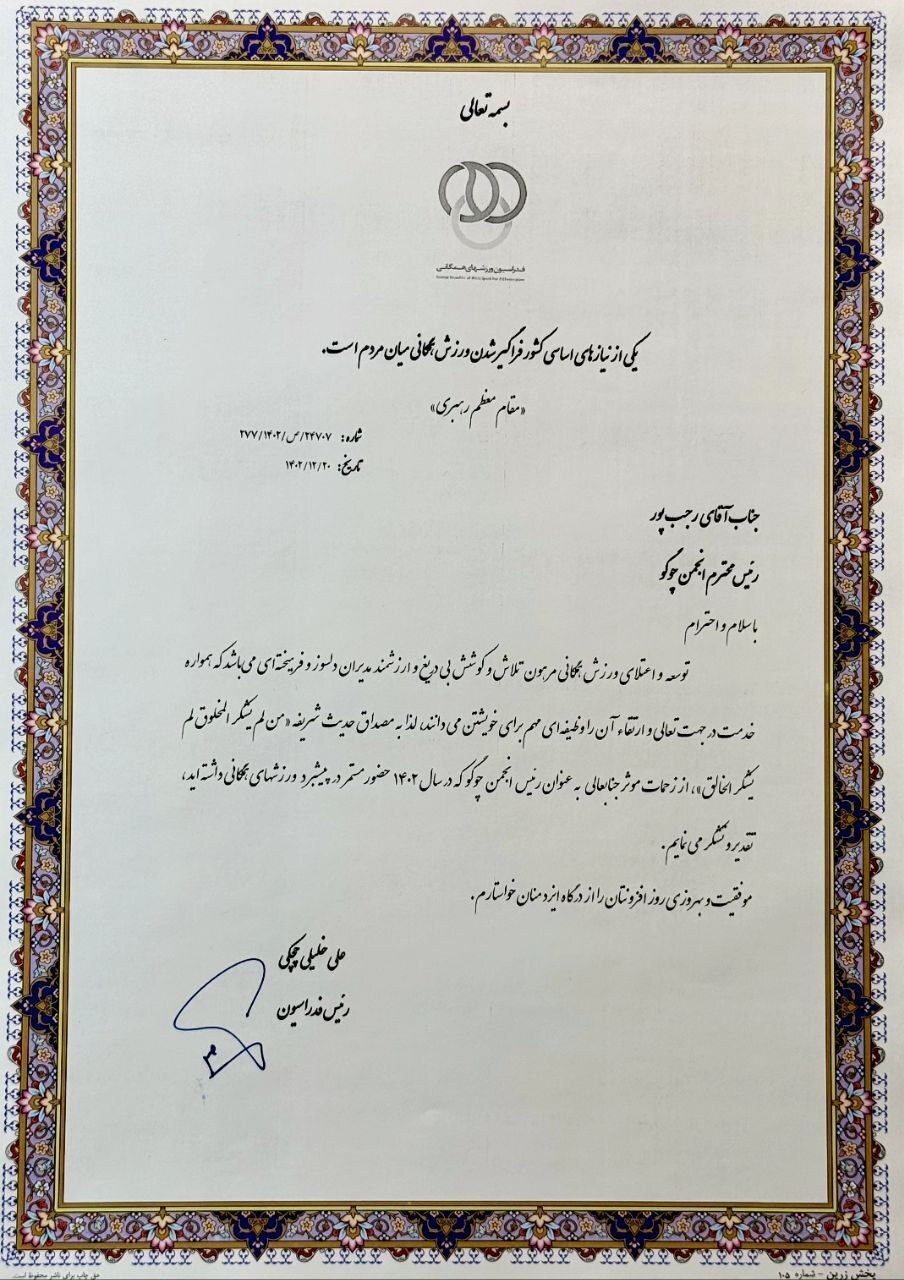 بسمه تعالی
فدراسیون ورزشهای همگانی
یکی از نیازهای اساسی کشور فراگیر شدن ورزش همگانی میان مردم است.
«مقام معظم رهبری»
شماره: ۲۴۷۰۷/ص/۲۷۷/۱۴۰۲
تاریخ: ۱۴۰۲/۱۲/۲۰
جناب آقای رجب پور
رئیس محترم انجمن چوگو
با سلام و احترام
توسعه و اعتلای ورزش همگانی مرهون تلاش و کوشش بی دریغ و ارزشمند مدیران دلسوز و فریخته‌ای می‌باشد که همواره
خدمت در جهت تعالی و ارتقاء آن را وظیفه‌ای مهم برای خویشتن می دانند، لذا به مصداق حدیث شریفه «من لم یشکر المخلوق لم
یشکر الخالق»، از زحمات موثر جنابعالی به عنوان رئیس انجمن چوگو که در سال ۱۴۰۲ حضور مستمر در پیشبرد ورزشهای همگانی داشته اید،
تقدیر و تشکر می نمایم.
موفقیت و بهروزی روز افزونتان را از درگاه ایزد منان خواستارم.
علی خلیلی چکی
رئیس فدراسیون
پخش زرین - شماره ۱۰۵
حق چاپ برای ناشر محفوظ است.